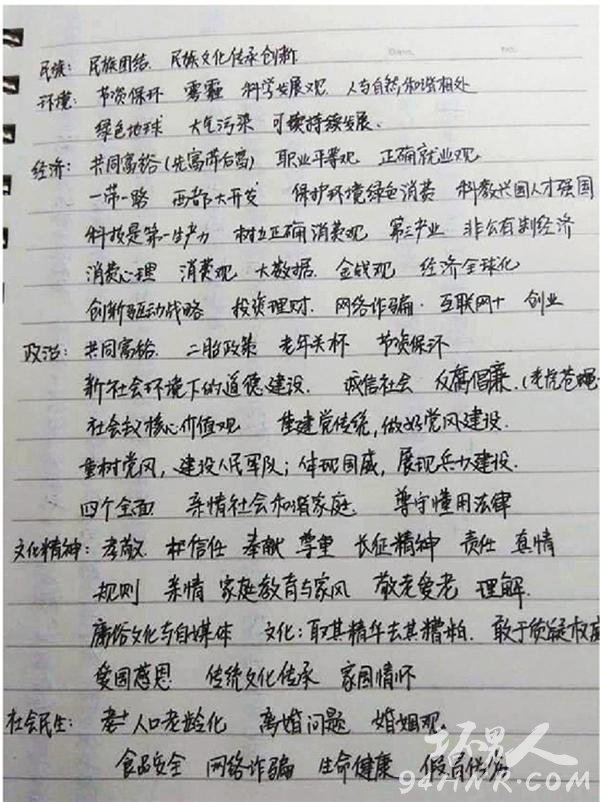 民族：民族团结 民族文化传承创新
环境：节资保环 雾霾 科学发展观 人与自然和谐相处
绿色地球 大气污染 可续持续发展.
经济：共同富裕(先富带后富) 职业平等观 正确就业观
一带一路 西部大开发 保护环境绿色消费 科教兴国人才强国
科技是第一生产力 树立正确消费观 第三产业 非公有制经济
消费心理 消费观 大数据. 金钱观 经济全球化
创新驱动战略 投资理财. 网络诈骗. 互联网+ 创业
政治：共同富裕. 二胎政策 老年关怀 节资保环
新社会环境下的道德建设. 诚信社会 反腐倡廉.(老虎苍蝇
社会主义核心价值观 重建党传统,做好党风建设.
重树党风,建设人民军队;体现国威,展现兵力建设.
四个全面 亲情社会和谐家庭. 尊守懂用法律
文化精神：孝敬. 相信任 奉献 尊重 长征精神 责任 真情
规则 亲情 家庭教育与家风 敬老爱老 理解.
庸俗文化与自媒体 文化:取其精华去其糟粕. 敢于质疑权威
爱国感恩 传统文化传承 家国情怀
社会民生： 人口老龄化 离婚问题 婚姻观.
食品安全 网络诈骗 生命健康 假冒伪劣
94HNR.COM